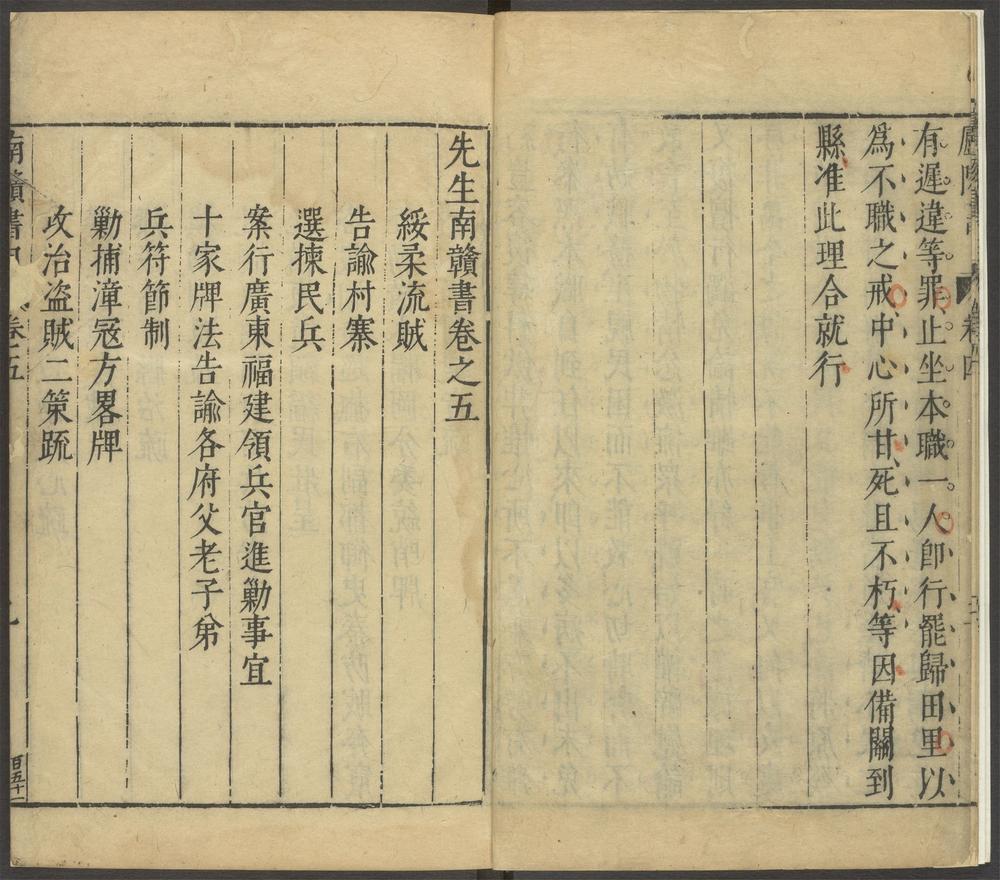 有遲違等罪止坐本職一人卽行罷歸田里以
爲不職之戒中心所甘死且不朽等因備關到
縣准此理合就行
先生南贛書卷之五
綏柔流賊
告諭村寨
選揀民兵
案行廣東福建領兵官進勦事宜
十家牌法告諭各府父老子弟
兵符節制
勦捕漳冦方畧牌
攻治盗賊二策䟽
南贛書
卷五
百五十一